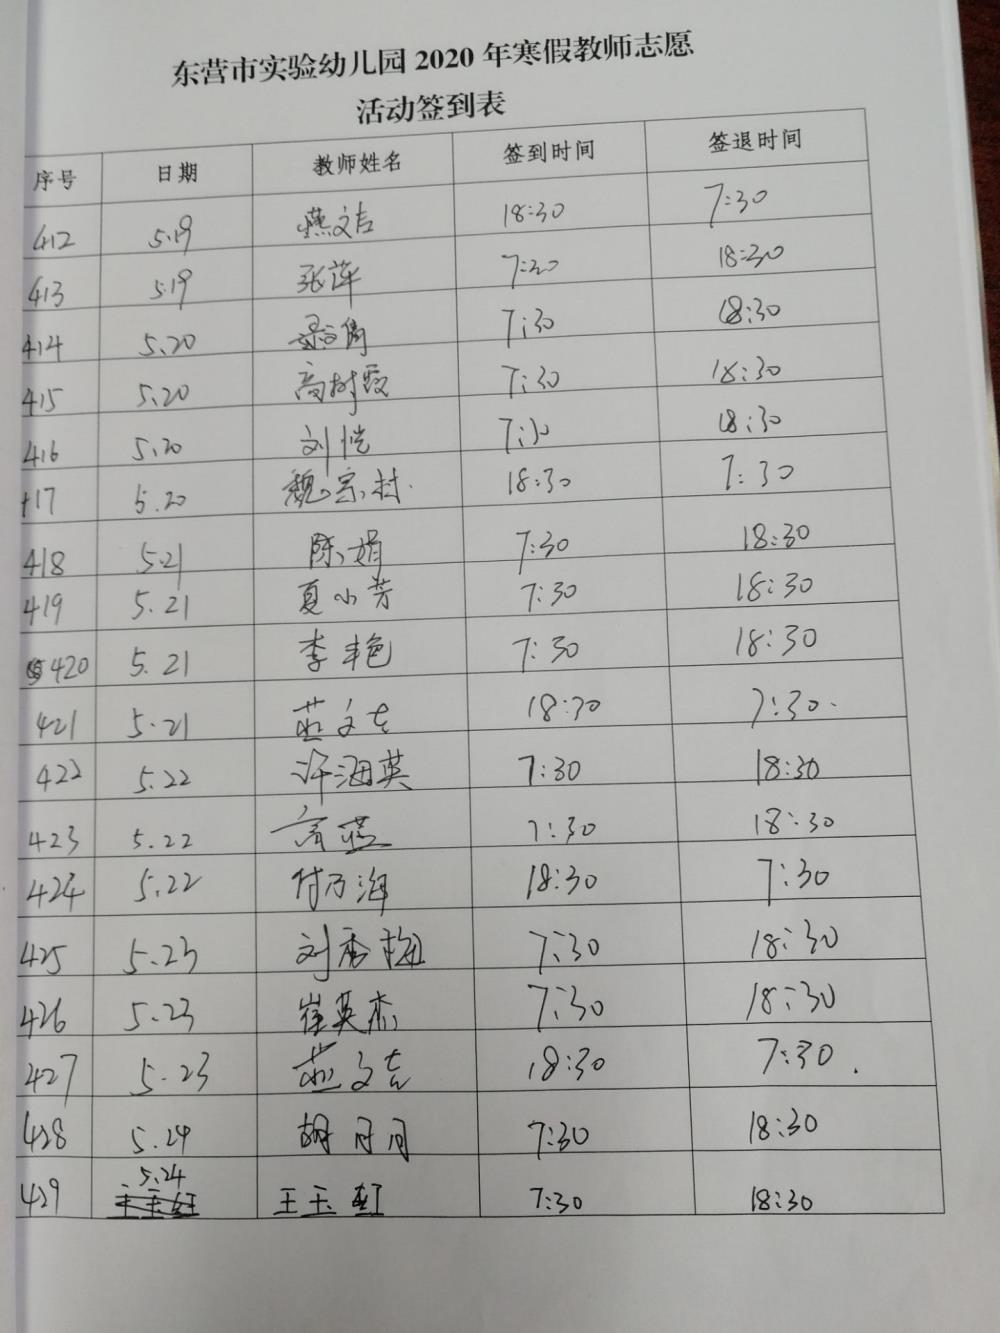 东营市实验幼儿园 2020 年寒假教师志愿
活动签到表
序号 日期 教师姓名 签到时间 签退时间
412 5.19 燕文吉 18:30 7:30
413 5.19 张萍 7:30 18:30
414 5.20 7:30 18:30
415 5.20 高树霞 7:30 18:30
416 5.20 刘恺 7:30 18:30
417 5.20 魏宗村 18:30 7:30
418 5.21 陈娟 7:30 18:30
419 5.21 夏小芳 7:30 18:30
420 5.21 李艳 7:30 18:30
421 5.21 燕文吉 18:30 7:30
422 5.22 许海英 7:30 18:30
423 5.22 7:30 18:30
424 5.22 付乃海 18:30 7:30
425 5.23 刘秀梅 7:30 18:30
426 5.23 崔英杰 7:30 18:30
427 5.23 燕文吉 18:30 7:30
428 5.24 胡月月 7:30 18:30
429 5.24 王玉虹 7:30 18:30